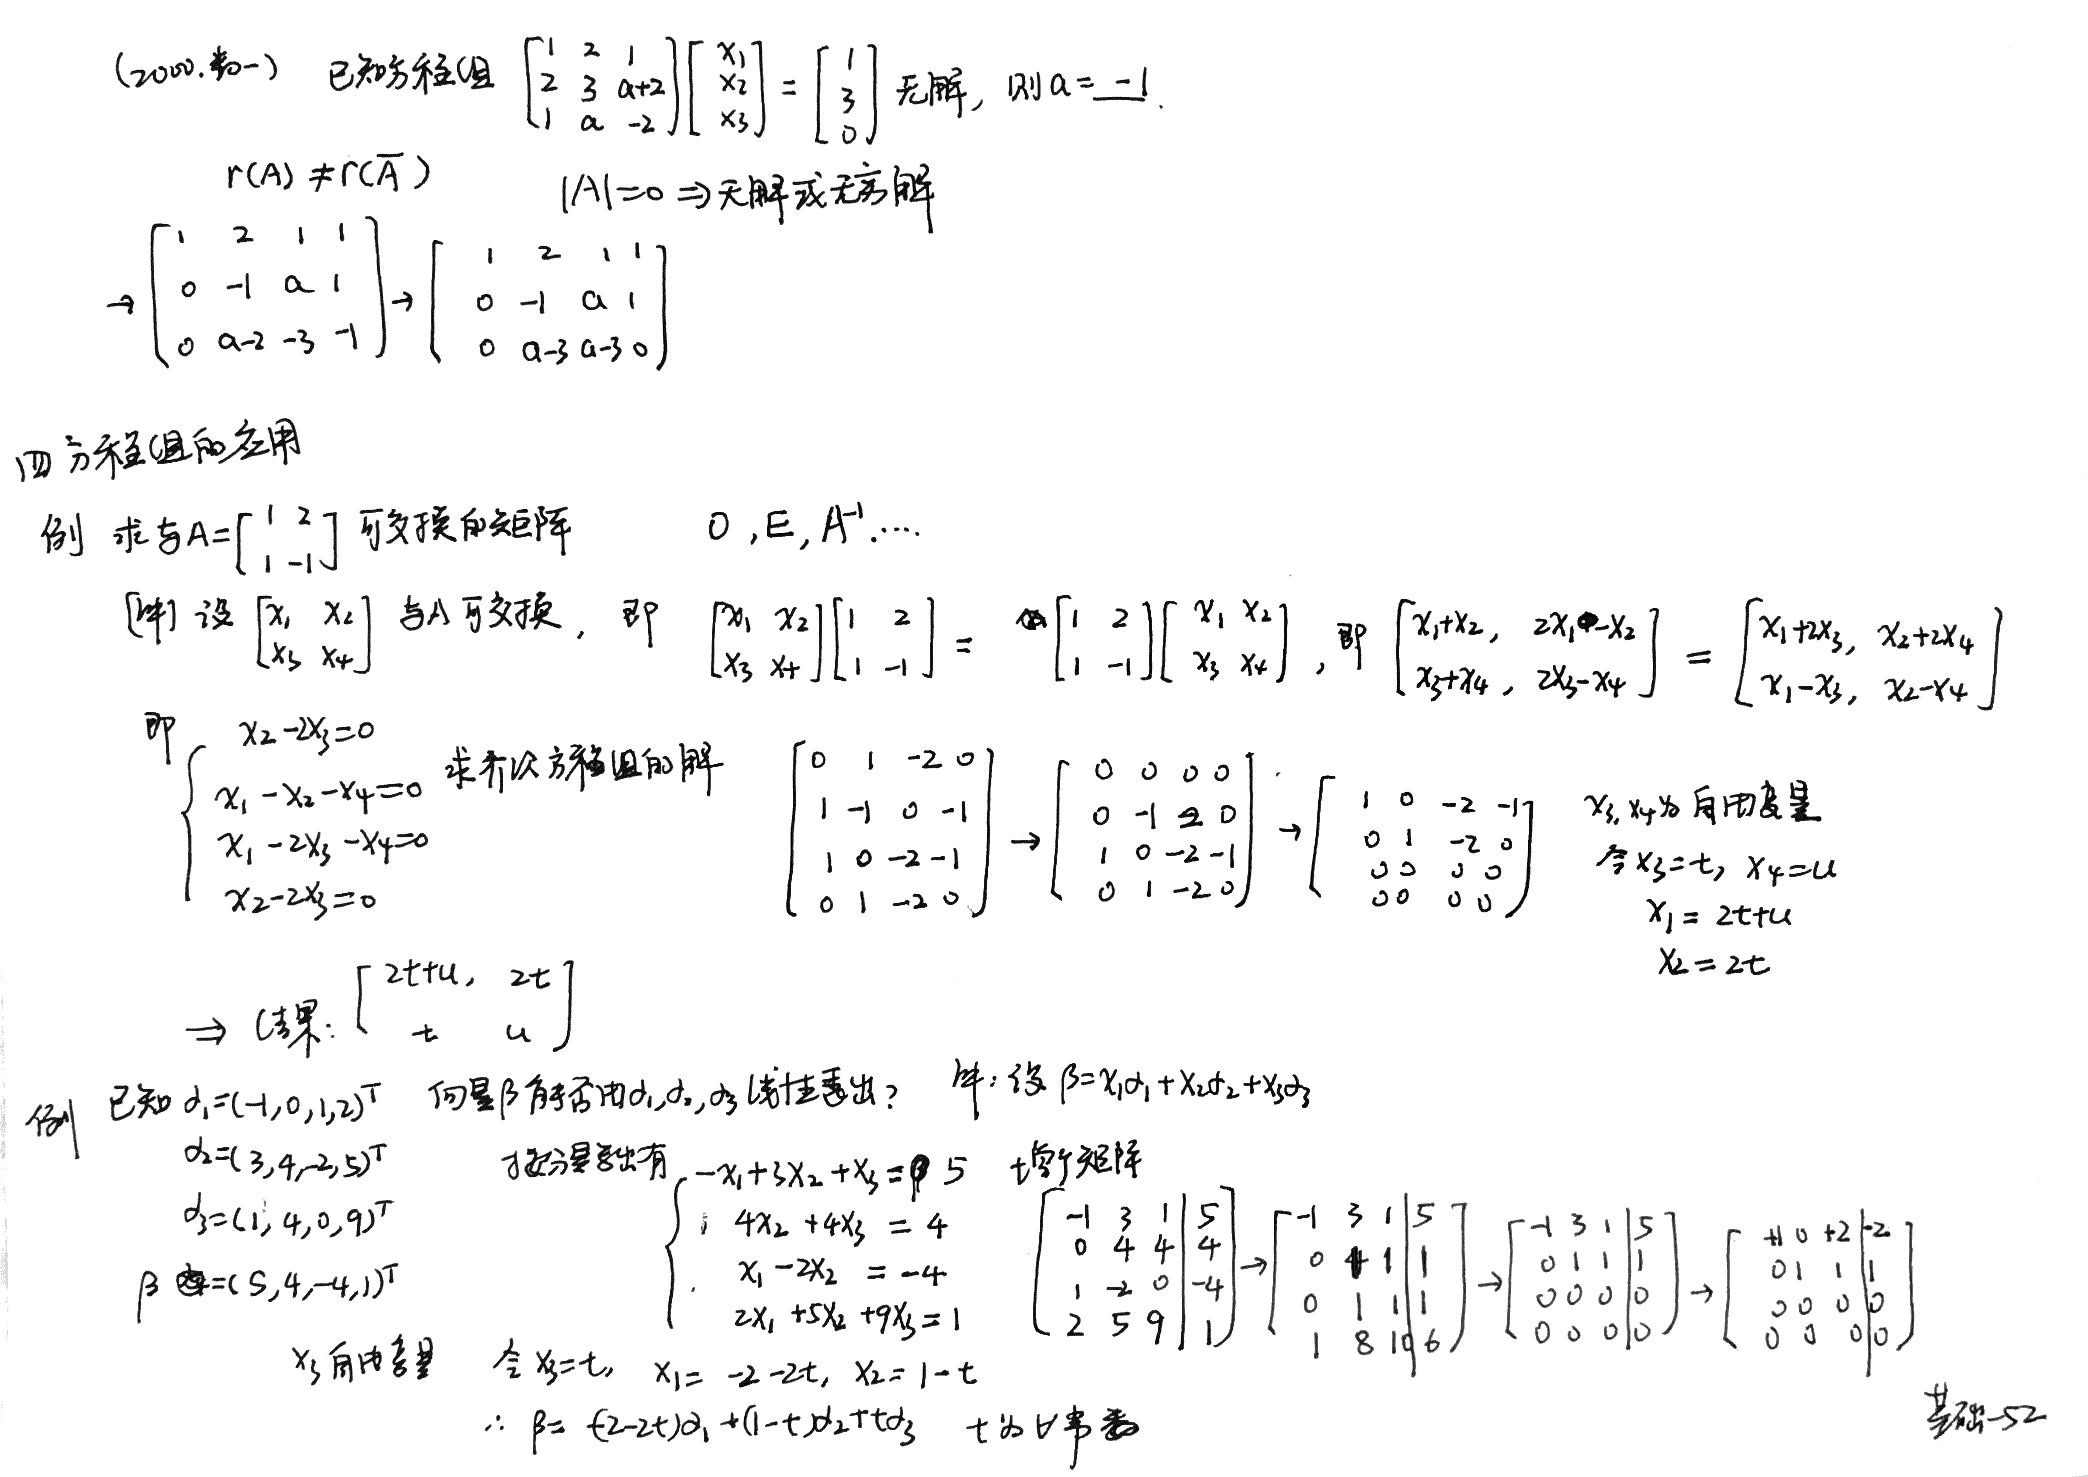 (2000.数一) 已知方程组 [1 2 1; 2 3 a+2; 1 a -2][x₁; x₂; x₃] = [1; 3; 0] 无解, 则a= -1.
r(A)≠r(Ā) |A|=0 ⇒ 无解或无穷解
→ [1 2 1 1; 0 -1 a 1; 0 a-2 -3 -1] → [1 2 1 1; 0 -1 a 1; 0 a-3 a-3 0]
四 方程组的应用
例 求与A=[1 2; 1 -1] 可交换的矩阵 0, E, A⁻¹....
[解] 设 [x₁ x₂; x₃ x₄] 与A可交换, 即 [x₁ x₂; x₃ x₄][1 2; 1 -1] = [1 2; 1 -1][x₁ x₂; x₃ x₄], 即 [x₁+x₂, 2x₁-x₂; x₃+x₄, 2x₃-x₄] = [x₁+2x₃, x₂+2x₄; x₁-x₃, x₂-x₄]
即 { x₂-2x₃=0
x₁-x₂-x₄=0
x₁-2x₃-x₄=0
x₂-2x₃=0
求齐次方程组的解 [0 1 -2 0; 1 -1 0 -1; 1 0 -2 -1; 0 1 -2 0] → [0 0 0 0; 0 -1 2 0; 1 0 -2 -1; 0 1 -2 0] → [1 0 -2 -1; 0 1 -2 0; 0 0 0 0; 0 0 0 0]
x₃, x₄为自由变量
令x₃=t, x₄=u
x₁=2t+u
x₂=2t
⇒ 结果: [2t+u, 2t; t u]
例 已知 α₁=(-1,0,1,2)ᵀ 向量β能否由α₁,α₂,α₃线性表出? 解: 设 β=x₁α₁+x₂α₂+x₃α₃
α₂=(3,4,-2,5)ᵀ
α₃=(1,4,0,9)ᵀ
β=(5,4,-4,1)ᵀ
按分量写出有 { -x₁+3x₂+x₃=5
4x₂+4x₃=4
x₁-2x₂=-4
2x₁+5x₂+9x₃=1
增广矩阵
[-1 3 1|5; 0 4 4|4; 1 -2 0|-4; 2 5 9|1] → [-1 3 1|5; 0 1 1|1; 0 1 1|1; 1 8 10|6] → [-1 3 1|5; 0 1 1|1; 0 0 0|0; 0 0 0|0] → [+1 0 +2|-2; 0 1 1|1; 0 0 0|0; 0 0 0|0]
x₃自由变量 令x₃=t, x₁=-2-2t, x₂=1-t
∴ β=(-2-2t)α₁+(1-t)α₂+tα₃ t为∀常数
基础-52